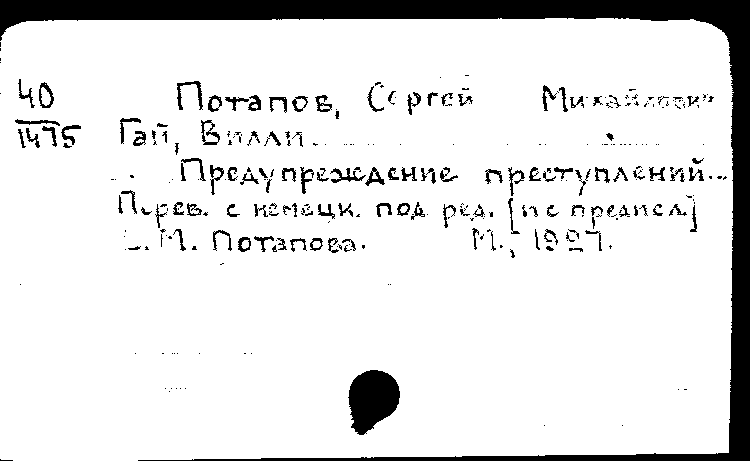 40 Потапов, Сергей Михайлович
1475 Гай, Вилли
Предупреждение преступлений...
Перев. с немецк. под ред. [и с предисл.]
С. М. Потапова. М., 1927.